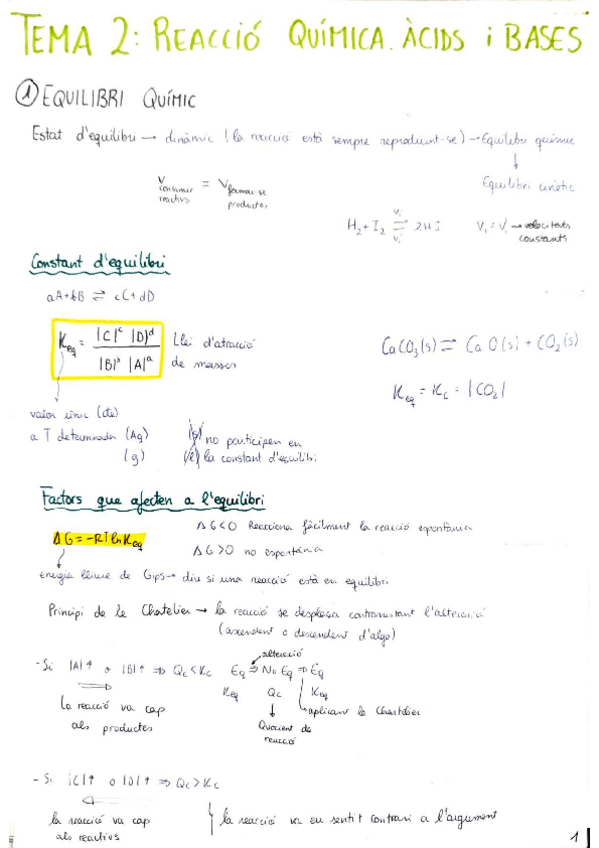 TEMA 2: REACCIÓ QUÍMICA. ÀCIDS i BASES
① EQUILIBRI QUÍMIC
Estat d'equilibri → dinàmic (la reacció està sempre reproduint-se) → Equilibri químic
↓
Equilibri cinètic
V consumir reactius = V formar-se productes
H₂ + I₂ ⇌ 2HI V₁ = V₁' → velocitats constants
Constant d'equilibri
aA + bB ⇌ cC + dD
Keq = |C|ᶜ |D|ᵈ / |B|ᵇ |A|ᵃ Llei d'atracció de masses
CaCO₃(s) ⇌ CaO(s) + CO₂(s)
Keq = Kc = |CO₂|
valor únic (cte)
a T determinada (Aq) (s) no participen en
(g) (l) la constant d'equilibri
Factors que afecten a l'equilibri
ΔG = -RT ln Keq
ΔG<0 Reacciona fàcilment la reacció espontània
ΔG>0 no espontània
energia lliure de Gips → diu si una reacció està en equilibri
Principi de le Chatelier → la reacció se desplaça contrarestant l'alteració
(ascendent o descendent d'algo)
alteració
- Si |A|↑ o |B|↑ ⇒ Qc < Kc Eq ⇒ No Eq ⇒ Eq
Keq Qc Keq
la reacció va cap als productes
↓ aplicant le Chatelier
Quocient de reacció
- Si |C|↑ o |D|↑ ⇒ Qc > Kc
la reacció va cap als reactius
la reacció va en sentit contrari a l'augment
1